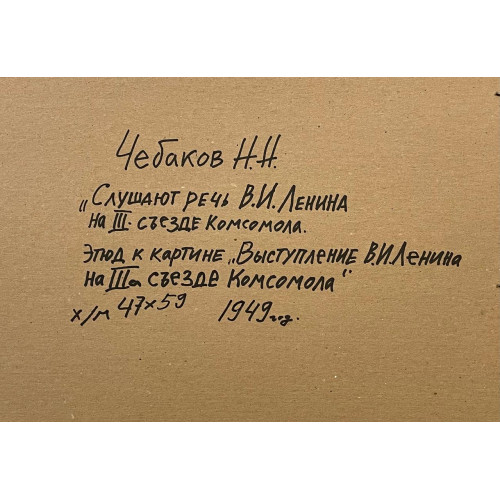 Чебаков Н.Н.
„Слушают речь В.И. Ленина
на III. съезде Комсомола.
Этюд к картине „Выступление В.И. Ленина
на IIIм съезде Комсомола“
х/м 47х59 1949 год.